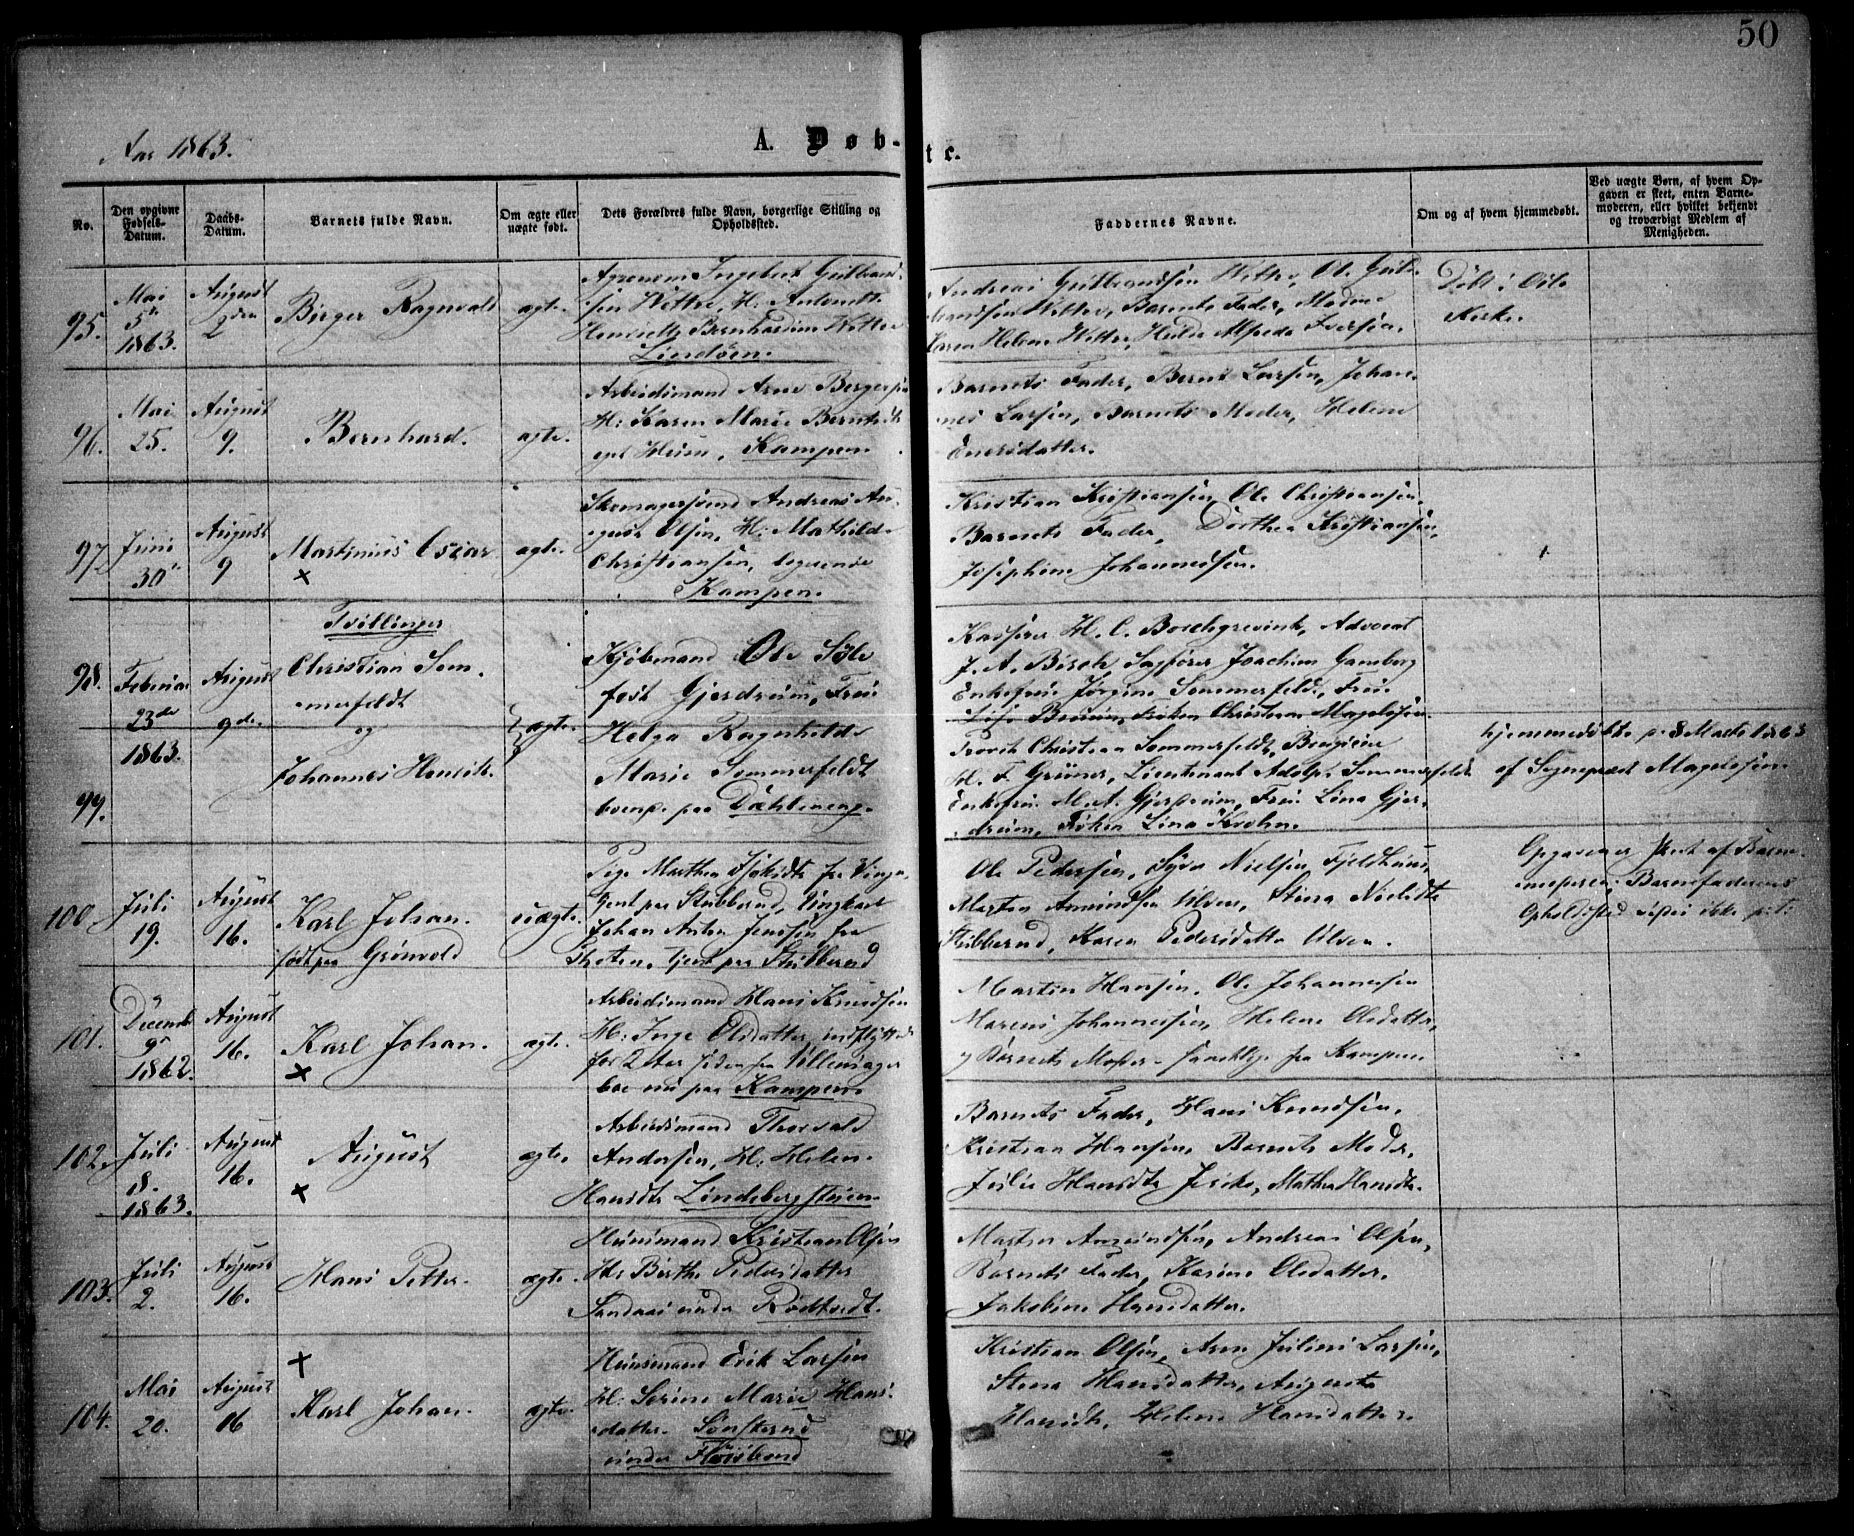 50
Aar 1863.
A. Døb-
te.
No.
Den opgivne Fødsels-Datum.
Daabs-Datum.
Barnets fulde Navn.
Om ægte eller uægte født.
Dets Forældres fulde Navn, borgerlige Stilling og Opholdssted.
Faddernes Navne.
Om og af hvem hjemmedøbt.
Ved uægte Børn, af hvem Op-
gaven er skeet, enten Barne-
moderen, eller hvilket bekjendt
og troværdigt Medlem af
Menigheden.
95.
Mai
5te
1863.
August
2den
Birger Ragnvald
ægte.
Ingebert Gulbrand-
sen Wittre, H: Antonette
Henriette Bernhardine Wittre
Lindøen.
Andreas Gulbrandsen Wittre, Ole Gul-
brandsen Wittre, Barnets Fader, Madme
Karen Helene Wittre, Hulda Alfreda Iversen.
Døbt i Oslo
Kirke.
96.
Mai
25.
August
9.
Bernhard.
ægte.
Arbeidsmand Arne Bergersen
H: Karen Marie Berntsdt
Kampen
Barnets Fader, Bernt Larsen, Johan-
nes Larsen, Barnets Moder, Helene
Enersdatter.
97
Juni
30te
August
9
Martinius Oscar
×
ægte.
Skomagersvend Andreas Au-
gust Olsen, H: Mathilde
Christiansen, logerende
Kampen.
Kristian Kristiansen, Ole Christiansen,
Barnets Fader, Dorthea Kristiansen,
Josephine Johannessen.
98.
Februar
23de
1863.
99.
August
9de.
Tvillinger
Christian Som-
merfeldt
og
Johannes Henrik.
ægte.
Kjøbmand Ole Syle
fast Gjerdrum, Frue
Helga Ragnhilde
Marie Sommerfeldt
boende paa Dæhleneng.
Kasserer H. C. Borchgrevink, Advocat
J. A. Bisch, Sagfører Joachim Gamborg
Enkefrue Jørgine Sommerfeldt, Frue
Bruun, Frøken Christiane Magelssen.
Provst Christian Sommerfeldt, Brugseier
H. F. Grüner, Lieutenant Adolph Sommerfeldt
Enkefrue M. A. Gjerdrum, Frue Lina Gjer-
drum, Frøken Lina Kvolen.
hjemmedøbte d. 8 Marts 1863
af Sognepræst Magelssen.
100
Juli
19.
August
16.
Karl Johan.
født paa Grønvold
uægte.
Pige Marthea
paa Stubberud, Ungkarl
Johan Anton Jensen fra
Thoten, tjent paa Stubberud
Ole Pedersen, Syver Nielsen, Fjeldhuus,
Marten Amundsen Ulven, Stina Nielsdtr
Stubberud, Karen Pedersdatter Ulven.
Opgaven er skeet af Barne-
moderen; Barnefaderens
Opholdssted vides ikke
101.
Decemb
9de
1862.
August
16.
Karl Johan.
×
ægte.
Arbeidsmand Hans Knudsen
H: Inge Olsdatter, indflyttede
for 2 Aar siden fra Ullensager
boe nu paa Kampen.
Martin Hansen, Ole Johannesen
Marens Johannessen, Helene Olsdatter,
og Barnets Moder – samtlige fra Kampen
102.
Juli
18.
1863.
August
16.
August
×
ægte.
Arbeidsmand Thorvald
Andersen, H: Helene
Hansdtr Lindebergstuen
Barnets Fader, Hans Knudsen,
Kristian Hansen, Barnets Moder,
Julie Hansdtr Mathea Hansdtr.
103.
Juli
2.
August
16.
Hans Petter.
ægte.
Huusmand Kristian Olsen
H: Berthe Pedersdatter
Sandaas under Rødtvedt.
Marten Amundsen, Andreas Olsen,
Barnets Fader, Karine Olsdatter.
Jakobine Hansdatter.
104.
Mai
20.
August
16
×
Karl Johan.
ægte.
Huusmand Erik Larsen
H: Serine Marie Hans-
datter. Sønsterud
under Fløisbond
Kristian Olsen, Arne Julius Larsen,
Stena Hansdatter, Auguste
Hansdtr, Helene Hansdatter.